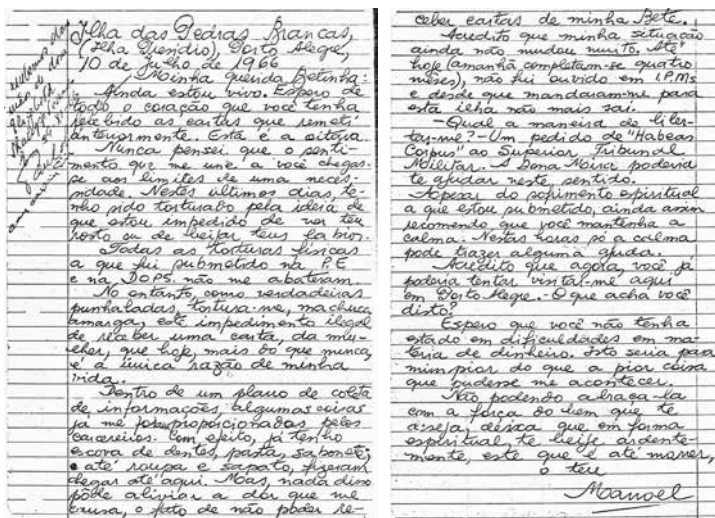 Ilha das Pedras Brancas,
(Ilha Presídio), Porto Alegre,
10 de julho de 1966
Minha querida Betinha:
Ainda estou vivo. Espero de
todo o coração que você tenha
recebido as cartas que remeti
anteriormente. Esta é a oitava.
Nunca pensei que o senti-
mento que me une a você chegas-
se aos limites de uma neces-
sidade. Nestes últimos dias, te-
nho sido torturado pela idéia de
que estou impedido de ver teu
rosto ou de beijar teus lábios.
Todas as torturas físicas
a que fui submetido na P.E
e na DOPS não me abateram.
No entanto, como verdadeiras
punhaladas, tortura-me, machuca,
amarga, este impedimento ilegal
de receber uma carta, da mu-
lher, que hoje, mais do que nunca,
é a única razão de minha
vida.
Dentro de um plano de coleta
de informações, algumas coisas
já me foram proporcionadas pelos
carcereiros. Com efeito, já tenho
escova de dentes, pasta, sabonete,
e até roupa e sapato, fizeram
chegar até aqui. Mas, nada disso
pôde aliviar a dor que me
causa, o fato de não poder re-
ceber cartas de minha Bete.
Acredito que minha situação
ainda não mudou muito. Até
hoje (amanhã completam-se quatro
meses), não fui ouvido em I.P.Ms
e desde que mandaram-me para
esta ilha não mais saí.
- Qual a maneira de liber-
tar-me? - Um pedido de "Habeas
Corpus" ao Superior Tribunal
Militar. A Dona Moira poderia
te ajudar neste sentido.
Apesar do sofrimento espiritual
a que estou submetido, ainda assim
recomendo que você mantenha a
calma. Nestas horas só a calma
pode trazer alguma ajuda.
Acredito que agora, você já
poderia tentar visitar-me aqui
em Porto Alegre. O que acha você
disto?
Espero que você não tenha
estado em dificuldades em ma-
téria de dinheiro. Isto seria para
mim pior do que a pior coisa
que pudesse me acontecer.
Não podendo abraça-la
com a força do bem que te
deseja, deseja que em forma
espiritual, te beije ardente-
mente, este que é até morrer,
o teu
Manoel